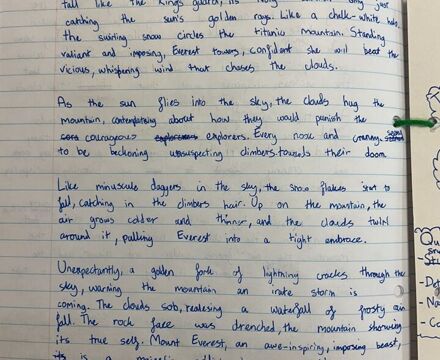 tall like the King's guard, its
just
catching the sun's golden rays. Like a chalk-white halo,
the swirling snow circles the titanic mountain. Standing
valiant and imposing, Everest towers, confident she will beat the
vicious, whispering wind that chases the clouds.
As the sun flies into the sky, the clouds hug the
mountain, contemplating about how they would punish the
courageous explorers. Every nook and cranny
to be beckoning unsuspecting climbers towards their doom
Like minuscule daggers in the sky, the snow flakes start to
fall, catching in the climbers hair. Up on the mountain, the
air grows colder and thinner, and the clouds twirl
around it, pulling Everest into a tight embrace.
Unexpectantly, a golden fork of lightning cracks through the
sky, warning the mountain an irate storm is
coming. The clouds sob, realesing a waterfall of frosty
fall. The rock face was drenched, the mountain showing
its true self. Mount Everest, an awe-inspiring, imposing beast,
is a